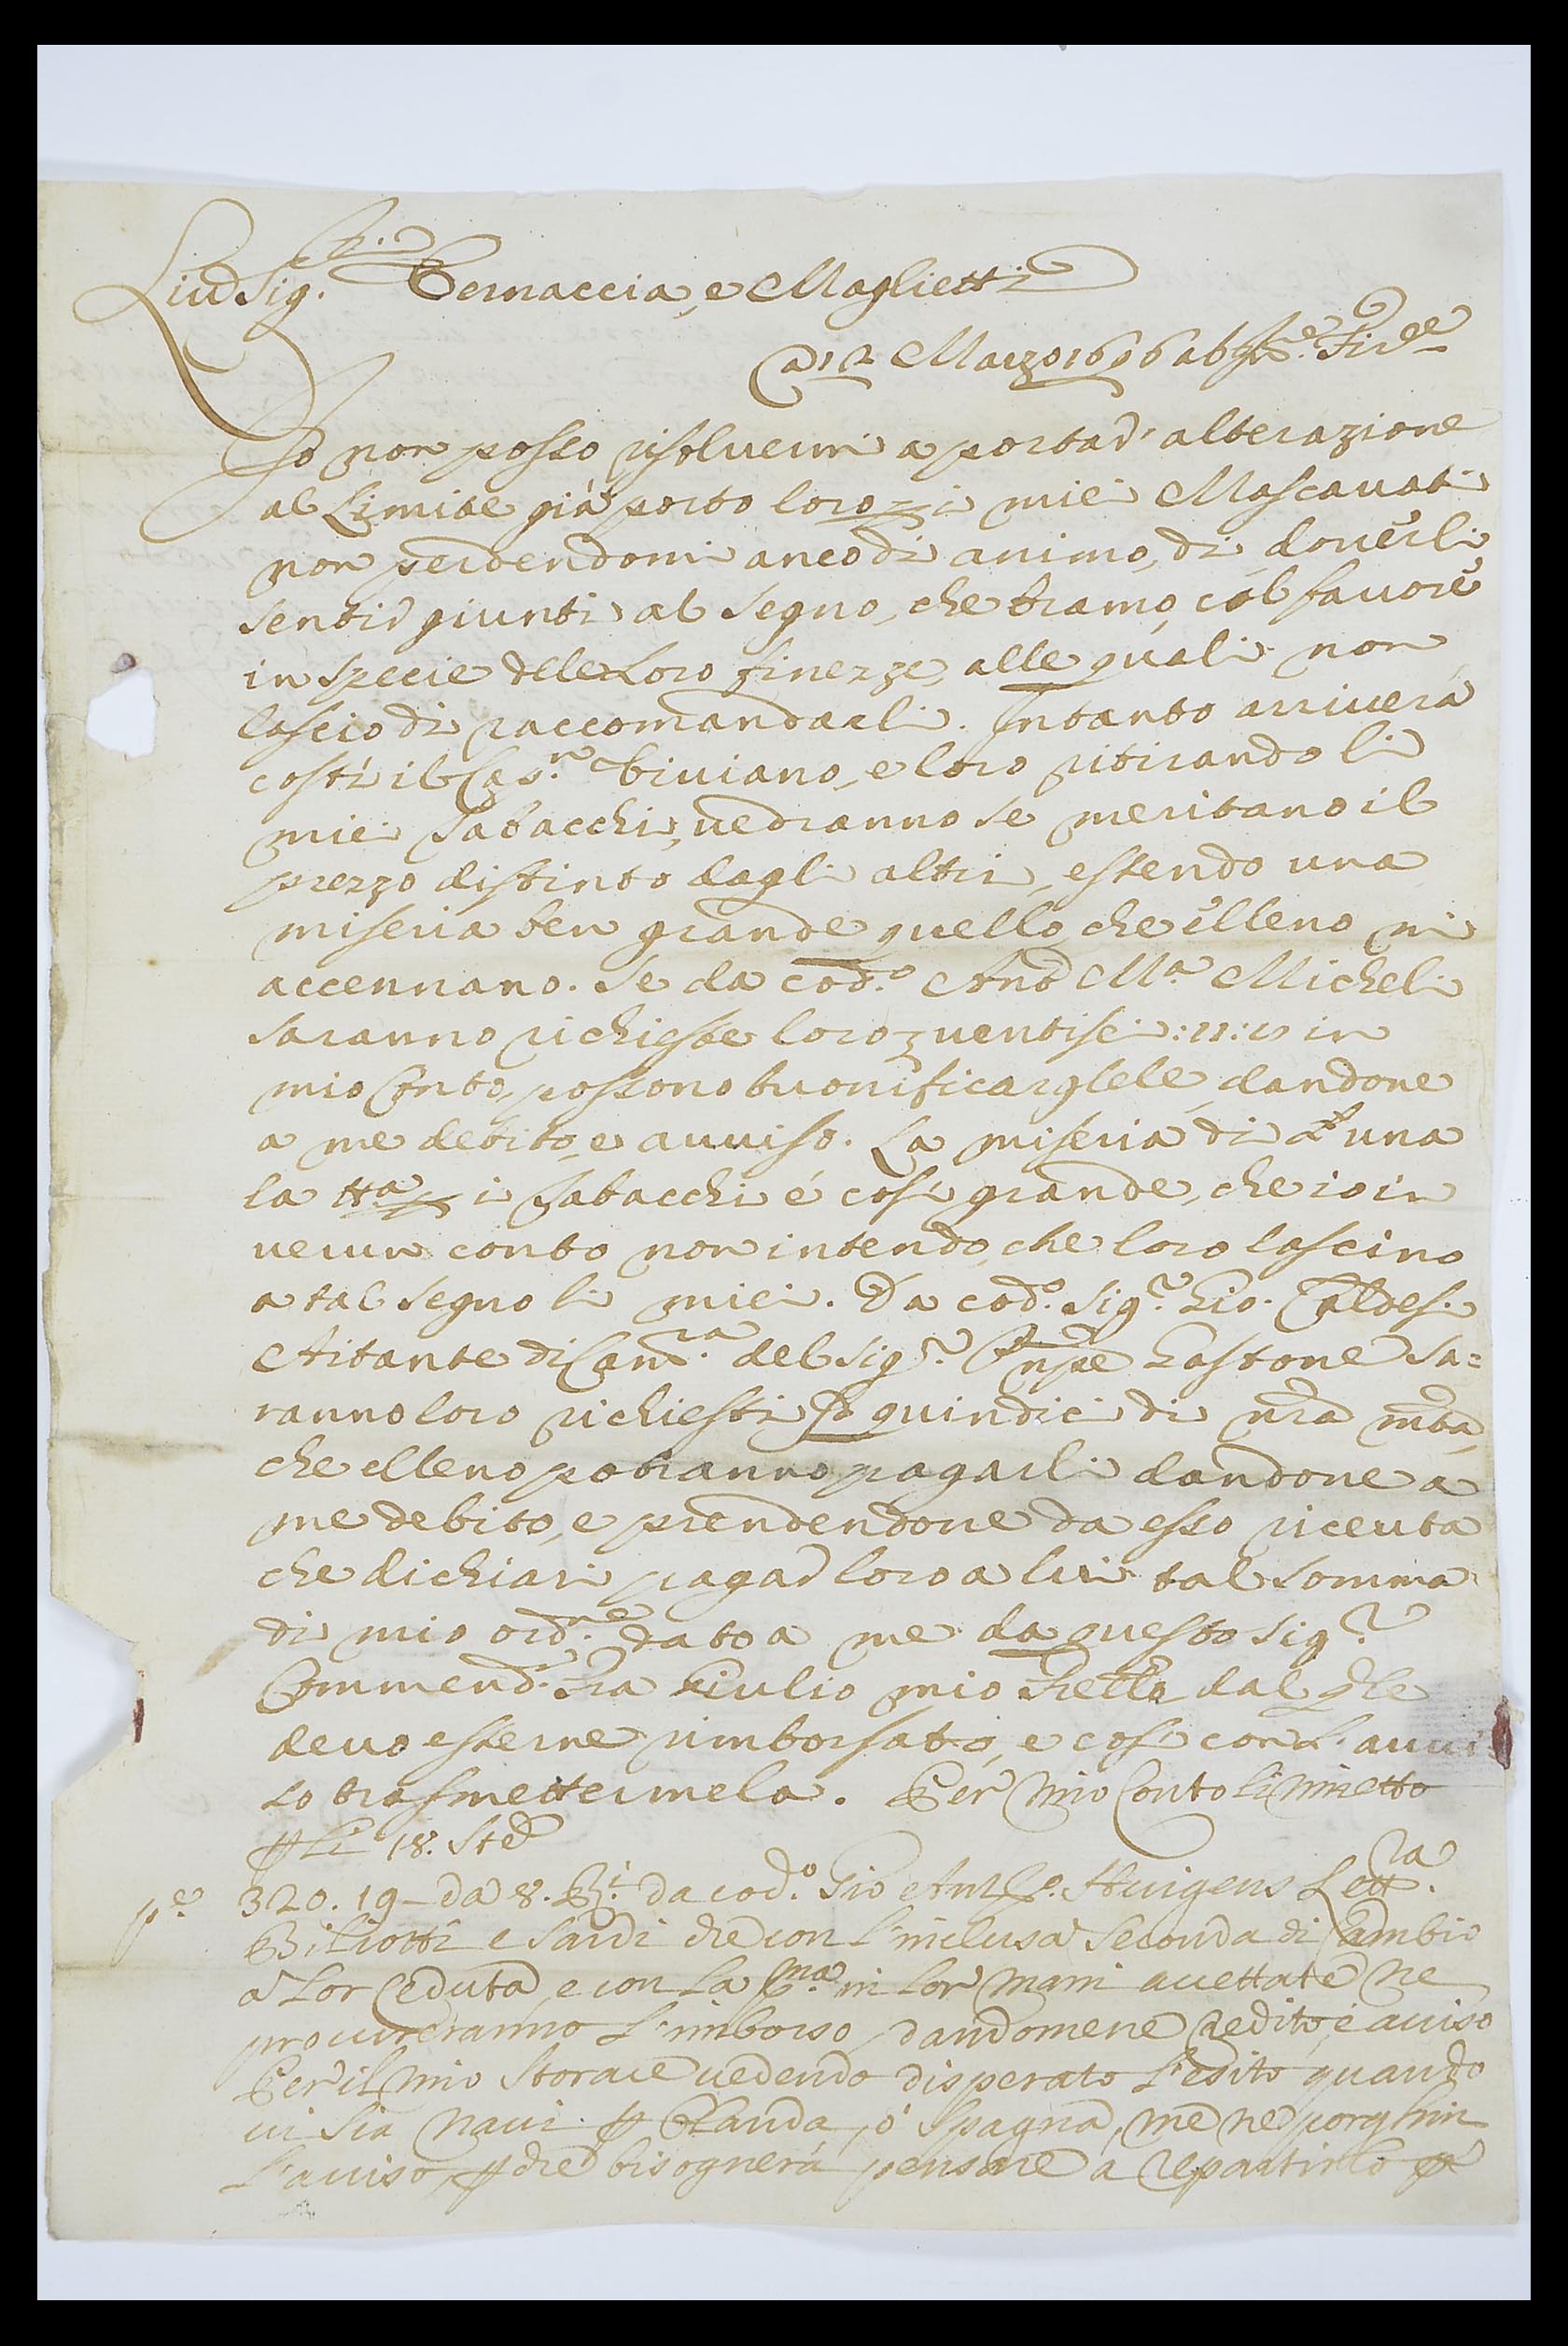 Liuo.<sup>o</sup> Sig.<sup>ri</sup> Bernaccia, e Maglietti
a 12 Marzo 1696 ab Inc.<sup>e</sup> Fir.<sup>ze</sup>
Io non posso risolvermi a portar' alterazione
al Limite già porto loro p i miei Mascavati
non perdendomi anco di animo, di doverli
sentir giunti al segno, che bramo, col favore
in specie delle Loro finezze, alle quali non
lascio di raccomandarli. Intanto arriverà
costì il Cap.<sup>n</sup> Viviano, e loro ritirando li
miei Tabacchi, vedranno se meritano il
prezzo distinto dagli altri, essendo una
miseria ben grande quello, che elleno mi
accennano. Se da cod.<sup>o</sup> And M.<sup>a</sup> Micheli
saranno richieste loro ventisei :11: in
mio Conto, possono buonificarglele, dandone
a me debito, e avviso. La miseria di una
la tt.<sup>a</sup> p i Tabacchi é cosi grande, che io in
verun conto non intendo, che loro lascino
a tal segno li miei. Da cod.<sup>o</sup> Sig.<sup>r</sup> Gio. Caldesi
Aitante di Cam.<sup>ra</sup> del Sig.<sup>r</sup> Pnpe Gastone sa=
ranno loro richiesti quindici di nra mta,
che elleno potranno pagarli dandone a
me debito, e prendendone da esso riceuta
che dichiari pagar loro a lui tal somma
di mio ord.<sup>ne</sup> dato a me da questo Sig.<sup>r</sup>
Commend.<sup>r</sup> Fra Giulio mio Frello dal qle
devo esserne rimborsato, e cosi con L' avvi
so trasmettermela. Per mio Conto li rimetto
p Li 18. Ste
p.<sup>e</sup> 320. 19 - da 8. Rl.<sup>i</sup> da cod.<sup>o</sup> Gio Ant.<sup>o</sup> Huigens Lett.<sup>ra</sup>
Biliotti e Sardi che con l'inclusa Seconda di Cambio
a Lor Ceduta, e con La p<sup>ma</sup> in Lor mani accettate ne
procureranno L'imborso, dandomene credito, e aviso
Per il mio Storace vedendo disperato L'esito, quando
vi sia Navi p Olanda, ò Spagna, me ne porghin
L'aviso, p che bisognerà pensare a repartirlo p